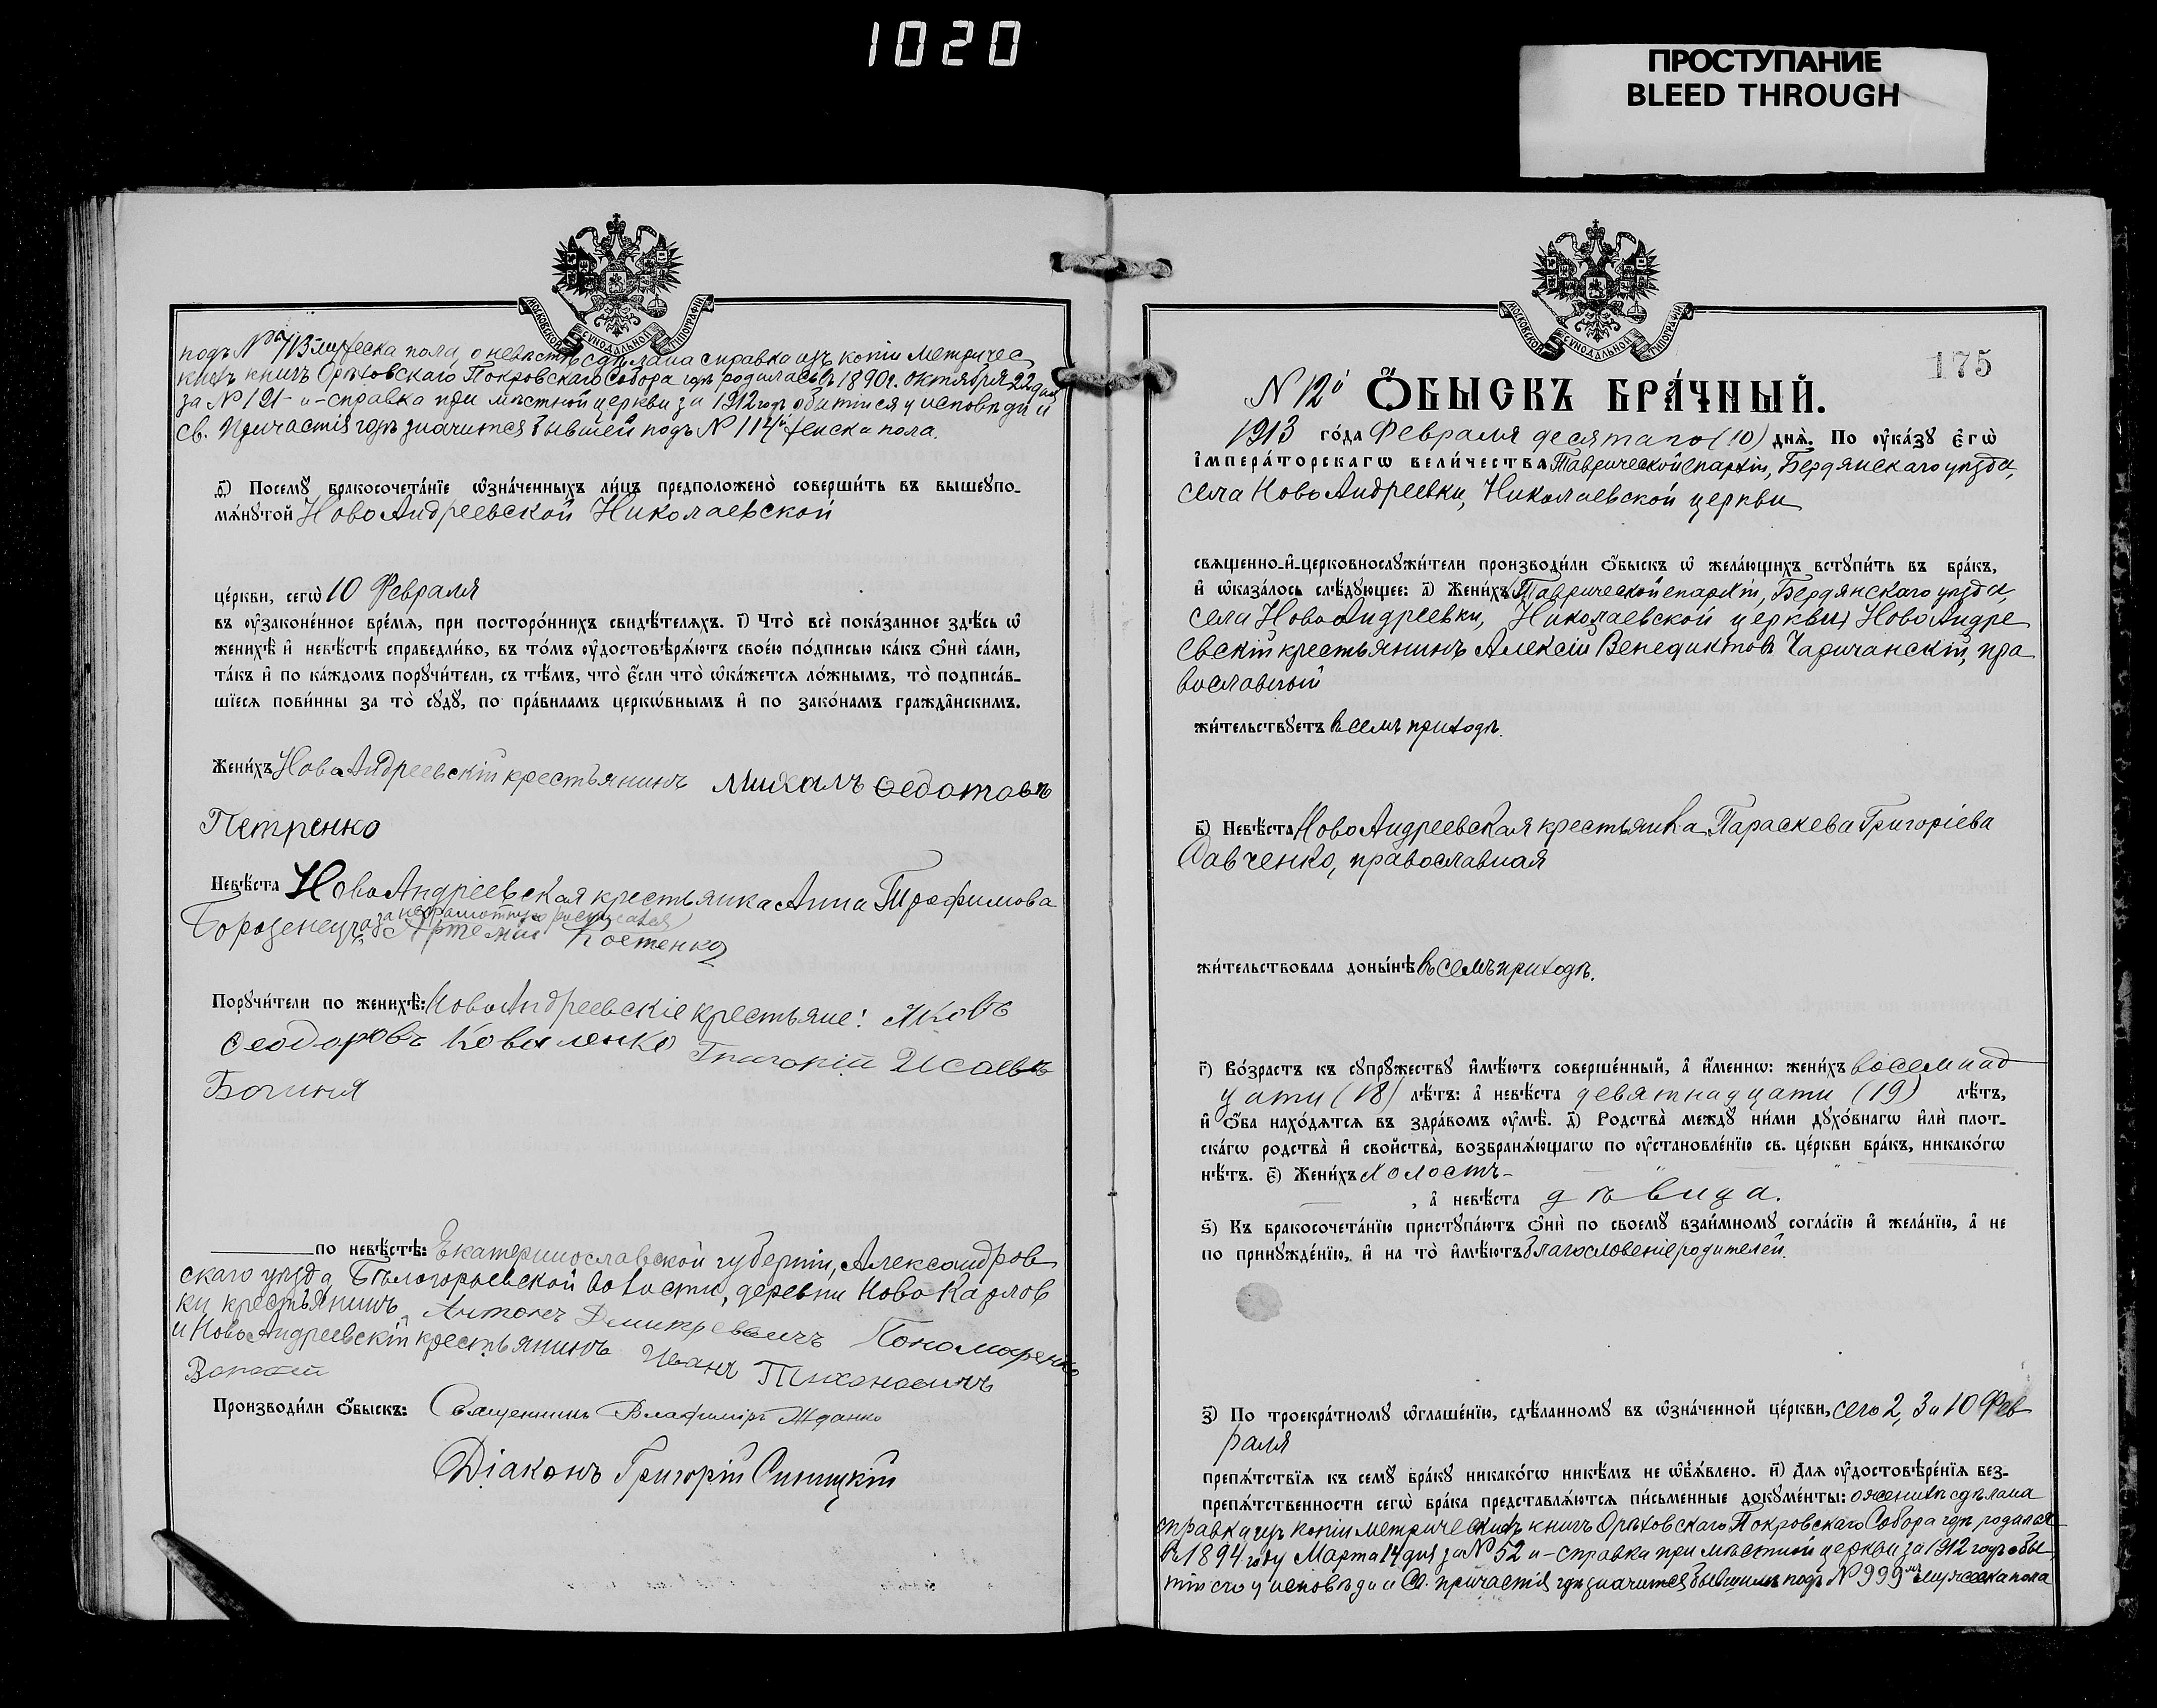 1020
ПРОСТУПАНИЕ
BLEED THROUGH
МОСКОВСКОЙ СѴНОДАЛЬНОЙ ТИПОГРАФІИ
подъ № 713 мужеска пола, о невѣстѣ сдѣлана справка изъ копіи метричес
кихъ книгъ Орѣховскаго Покровскаго Собора гдѣ родилась въ 1890 г. октября 22 дня
за № 121 и-справка при мѣстной церкви за 1912 годъ о бытіи ея у исповѣди и
св. Причастія гдѣ значится бывшей подъ № 114 женска пола.
д҃і) Посемꙋ̀ бракосочета́нїе ѡ҆зна́ченныхъ ли́цъ предположено̀ соверши́ть въ вышеꙋпо-
мѧ́нꙋтой НовоАндреевской Николаевской
це́ркви, сегѡ̀ 10 Февраля
въ ᲂу҆зако́ненное вре́мѧ, при посторо́ннихъ свидѣ́телѧхъ. і҃) Что̀ всѐ пока́занное здѣ́сь ѡ҆
женихѣ̀ и҆ невѣ́стѣ справедли́во, въ то́мъ ᲂу҆достовѣрѧ́ютъ свое́ю по́дписью ка́къ ѻ҆нѝ са́ми,
та́къ и҆ по ка́ждомъ порꙋчи́тели, съ тѣ́мъ, что̀ є҆́сли что̀ ѡ҆ка́жетсѧ ло́жнымъ, то̀ подписа́в-
шїесѧ пови́нны за то̀ сꙋдꙋ̀, по пра́виламъ церко́внымъ и҆ по зако́намъ гражда́нскимъ.
Жени́хъ НовоАндреевскій крестьянинъ Михаилъ Ѳедотовъ
Петренко
Невѣ́ста НовоАндреевская крестьянка Анна Трофимова
Борозенец за неграмотную росписался
Артемій Костенко
Порꙋчи́тели по женихѣ̀: НовоАндреевскіе крестьяне: Яковъ
Ѳеодоровъ Коваленко Григорій Исаевъ
Богиня
по невѣ́стѣ: Екатеринославской губерніи, Александров
скаго уѣзда Бѣлогорьевской волости, деревни НовоКарлов
ки крестьянинъ Антонъ Дмитревичъ Пономаренко
и НовоАндреевскій крестьянинъ Иванъ Тихановичъ
Производи́ли ѻ҆́быскъ: Священникъ Владиміръ Жданко
Діаконъ Григорій Синицкій
МОСКОВСКОЙ СѴНОДАЛЬНОЙ ТИПОГРАФІИ
175
№ 12й Ѻ҆́БЫСКЪ БРА́ЧНЫЙ.
1913 го́да Февраля десятаго (10) днѧ̀. По ᲂу҆ка́зꙋ є҆гѡ̀
і҆мпера́торскагѡ вели́чества Таврической епархіи, Бердянскаго уѣзда,
села НовоАндреевки, Николаевской церкви
свѧщенно-и҆-церковнослꙋжи́тели производи́ли ѻ҆́быскъ ѡ҆ жела́ющихъ встꙋпи́ть въ бра́къ,
и҆ ѡ҆каза́лось слѣ́дꙋющее: а҃) Жени́хъ Таврической епархіи, Бердянскаго уѣзда,
села НовоАндреевки, Николаевской церкви НовоАндре
евскій крестьянинъ Алексій Венедиктовъ Чаричанскій, пра
вославный
жи́тельствꙋетъ въ семъ приходѣ.
в҃) Невѣ́ста НовоАндреевская крестьянка Параскева Григоріева
Савченко, православная
жи́тельствовала доны́нѣ въ семъ приходѣ.
г҃) Во́зрастъ къ сꙋпрꙋ́жествꙋ и҆мѣ́ютъ соверше́нный, а҆ и҆́меннѡ: жени́хъ восемнад
цати (18) лѣ́тъ: а҆ невѣ́ста девятнадцати (19) лѣ́тъ,
и҆ ѻ҆́ба нахо́дѧтсѧ въ здра́вомъ ᲂу҆мѣ̀. д҃) Родства̀ междꙋ̀ ни́ми дꙋхо́внагѡ и҆лѝ плот-
ска́гѡ родства̀ и҆ сво́йства̀, возбранѧ́ющагѡ по ᲂу҆становле́нїю св. це́ркви бра́къ, никако́гѡ
нѣ́тъ. є҃) Жени́хъ холостъ
, а҆ невѣ́ста дѣвица.
ѕ҃) Къ бракосочета́нїю пристꙋпа́ютъ ѻ҆нѝ по своемꙋ̀ взаи́мномꙋ согла́сїю и҆ жела́нїю, а҆ не
по принꙋжде́нїю, и҆ на то̀ и҆мѣ́ютъ благословеніе родителей.
з҃) По троекра́тномꙋ ѡ҆глаше́нїю, сдѣ́ланномꙋ въ ѡ҆зна́ченной це́ркви, сего 2, 3 и 10 Фев
раля
препѧ́тствїѧ къ семꙋ̀ бра́кꙋ никако́гѡ никѣ́мъ не ѡ҆б̾ѧ́влено. и҃) Длѧ ᲂу҆достовѣре́нїѧ без-
препѧ́тственности сегѡ̀ бра́ка представлѧ́ютсѧ пи́сьменные докꙋме́нты: о женихѣ сдѣлана
справка изъ копіи метрическихъ книгъ Орѣховскаго Покровскаго Собора гдѣ родился
въ 1894 году Марта 14 дня за № 52 и-справка при мѣстной церкви за 1912 годъ о бы
тіи его у исповѣди и Св. причастія гдѣ значится бывшимъ подъ № 999 мъ мужеска пола